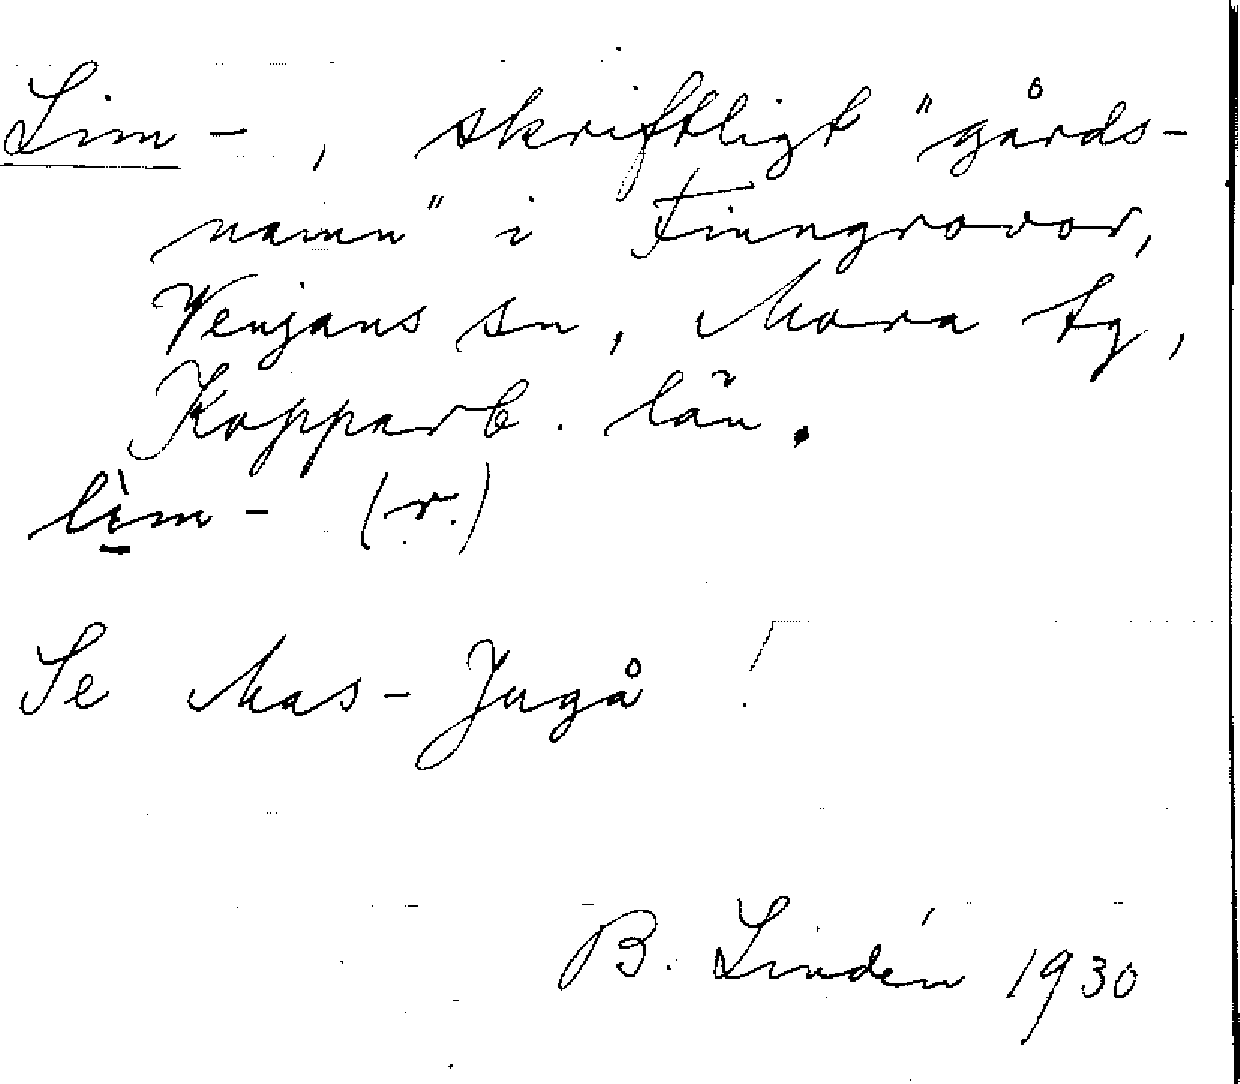 Lim-, skriftligt "gårds-
namn" i Finngrovor,
Venjans sn, Mora tg,
Kopparb. län.
lìm- (r.)
Se Mas-Jugå !
B. Lindén 1930